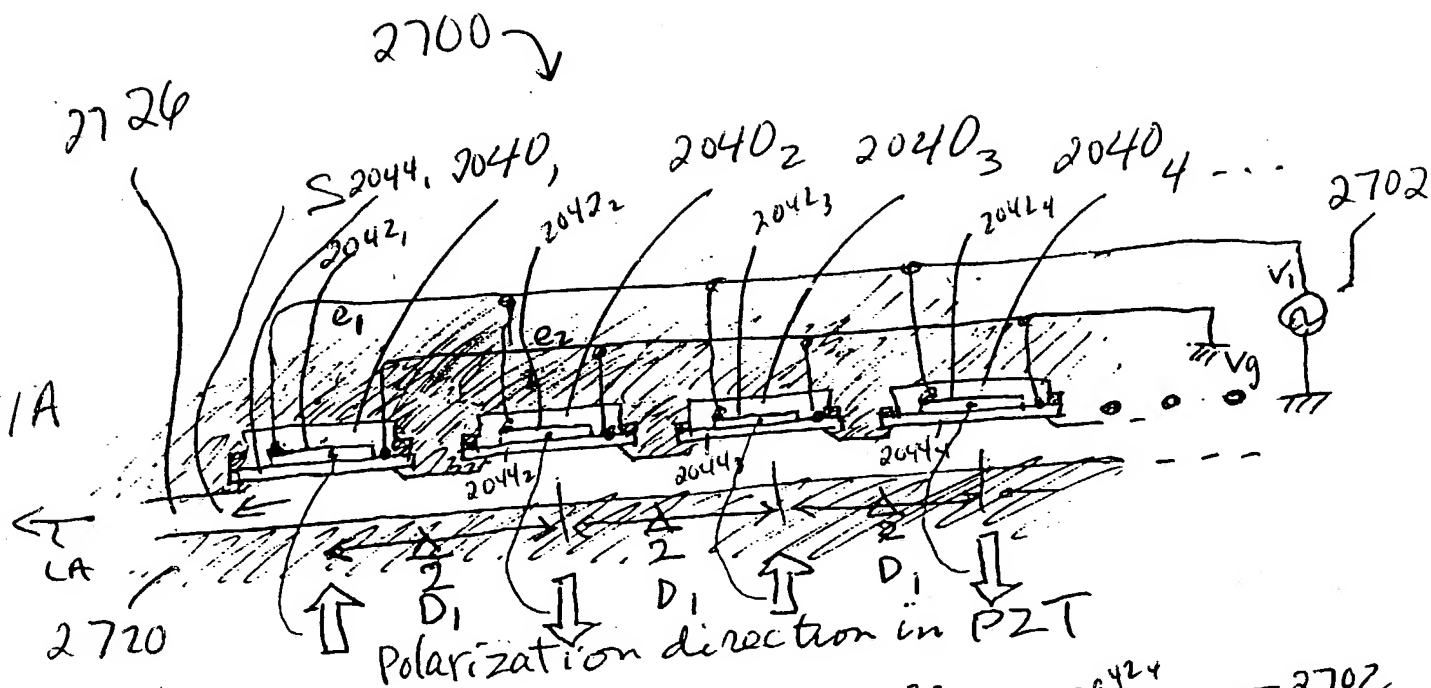 2700
2726
S 2044₁ 2040₁ 2040₂ 2040₃ 2040₄ ...
2702
2042₁ 2042₂ 2042₃ 2042₄
V₁
e₁
e₂
Vg
1A
2044₂ 2044₃ 2044₄
LA
Λ/2 Λ/2 Λ/2
D₁ D₁ D₁
2720
Polarization direction in PZT
2042₄ 2702